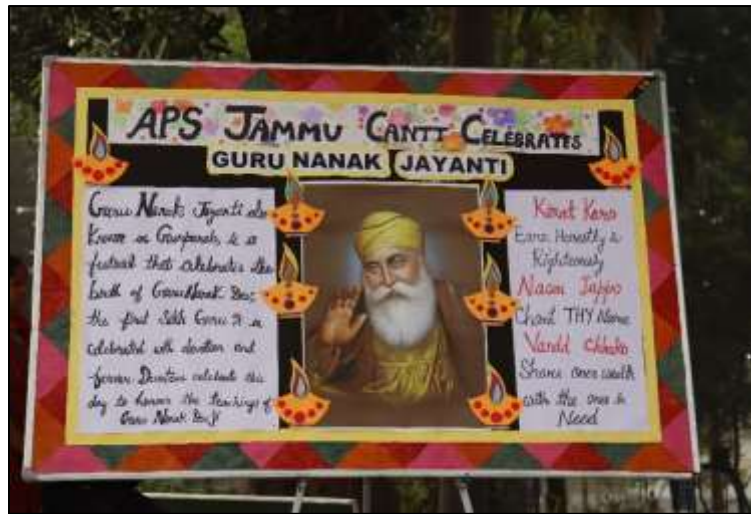 APS JAMMU CANTT CELEBRATES
GURU NANAK JAYANTI
Guru Nanak Jayanti also
Known as Gurpurab, is a
festival that celebrates the
birth of Guru Nanak Dev,
the first Sikh Guru. It is
celebrated with devotion and
fervour. Devotees celebrate this
day to honour the teachings of
Guru Nanak Dev Ji
Kirat Karo
Earn Honestly &
Righteously
Naam Jappo
Chant THY Name
Vandd Chhako
Share ones wealth
with the ones in
Need